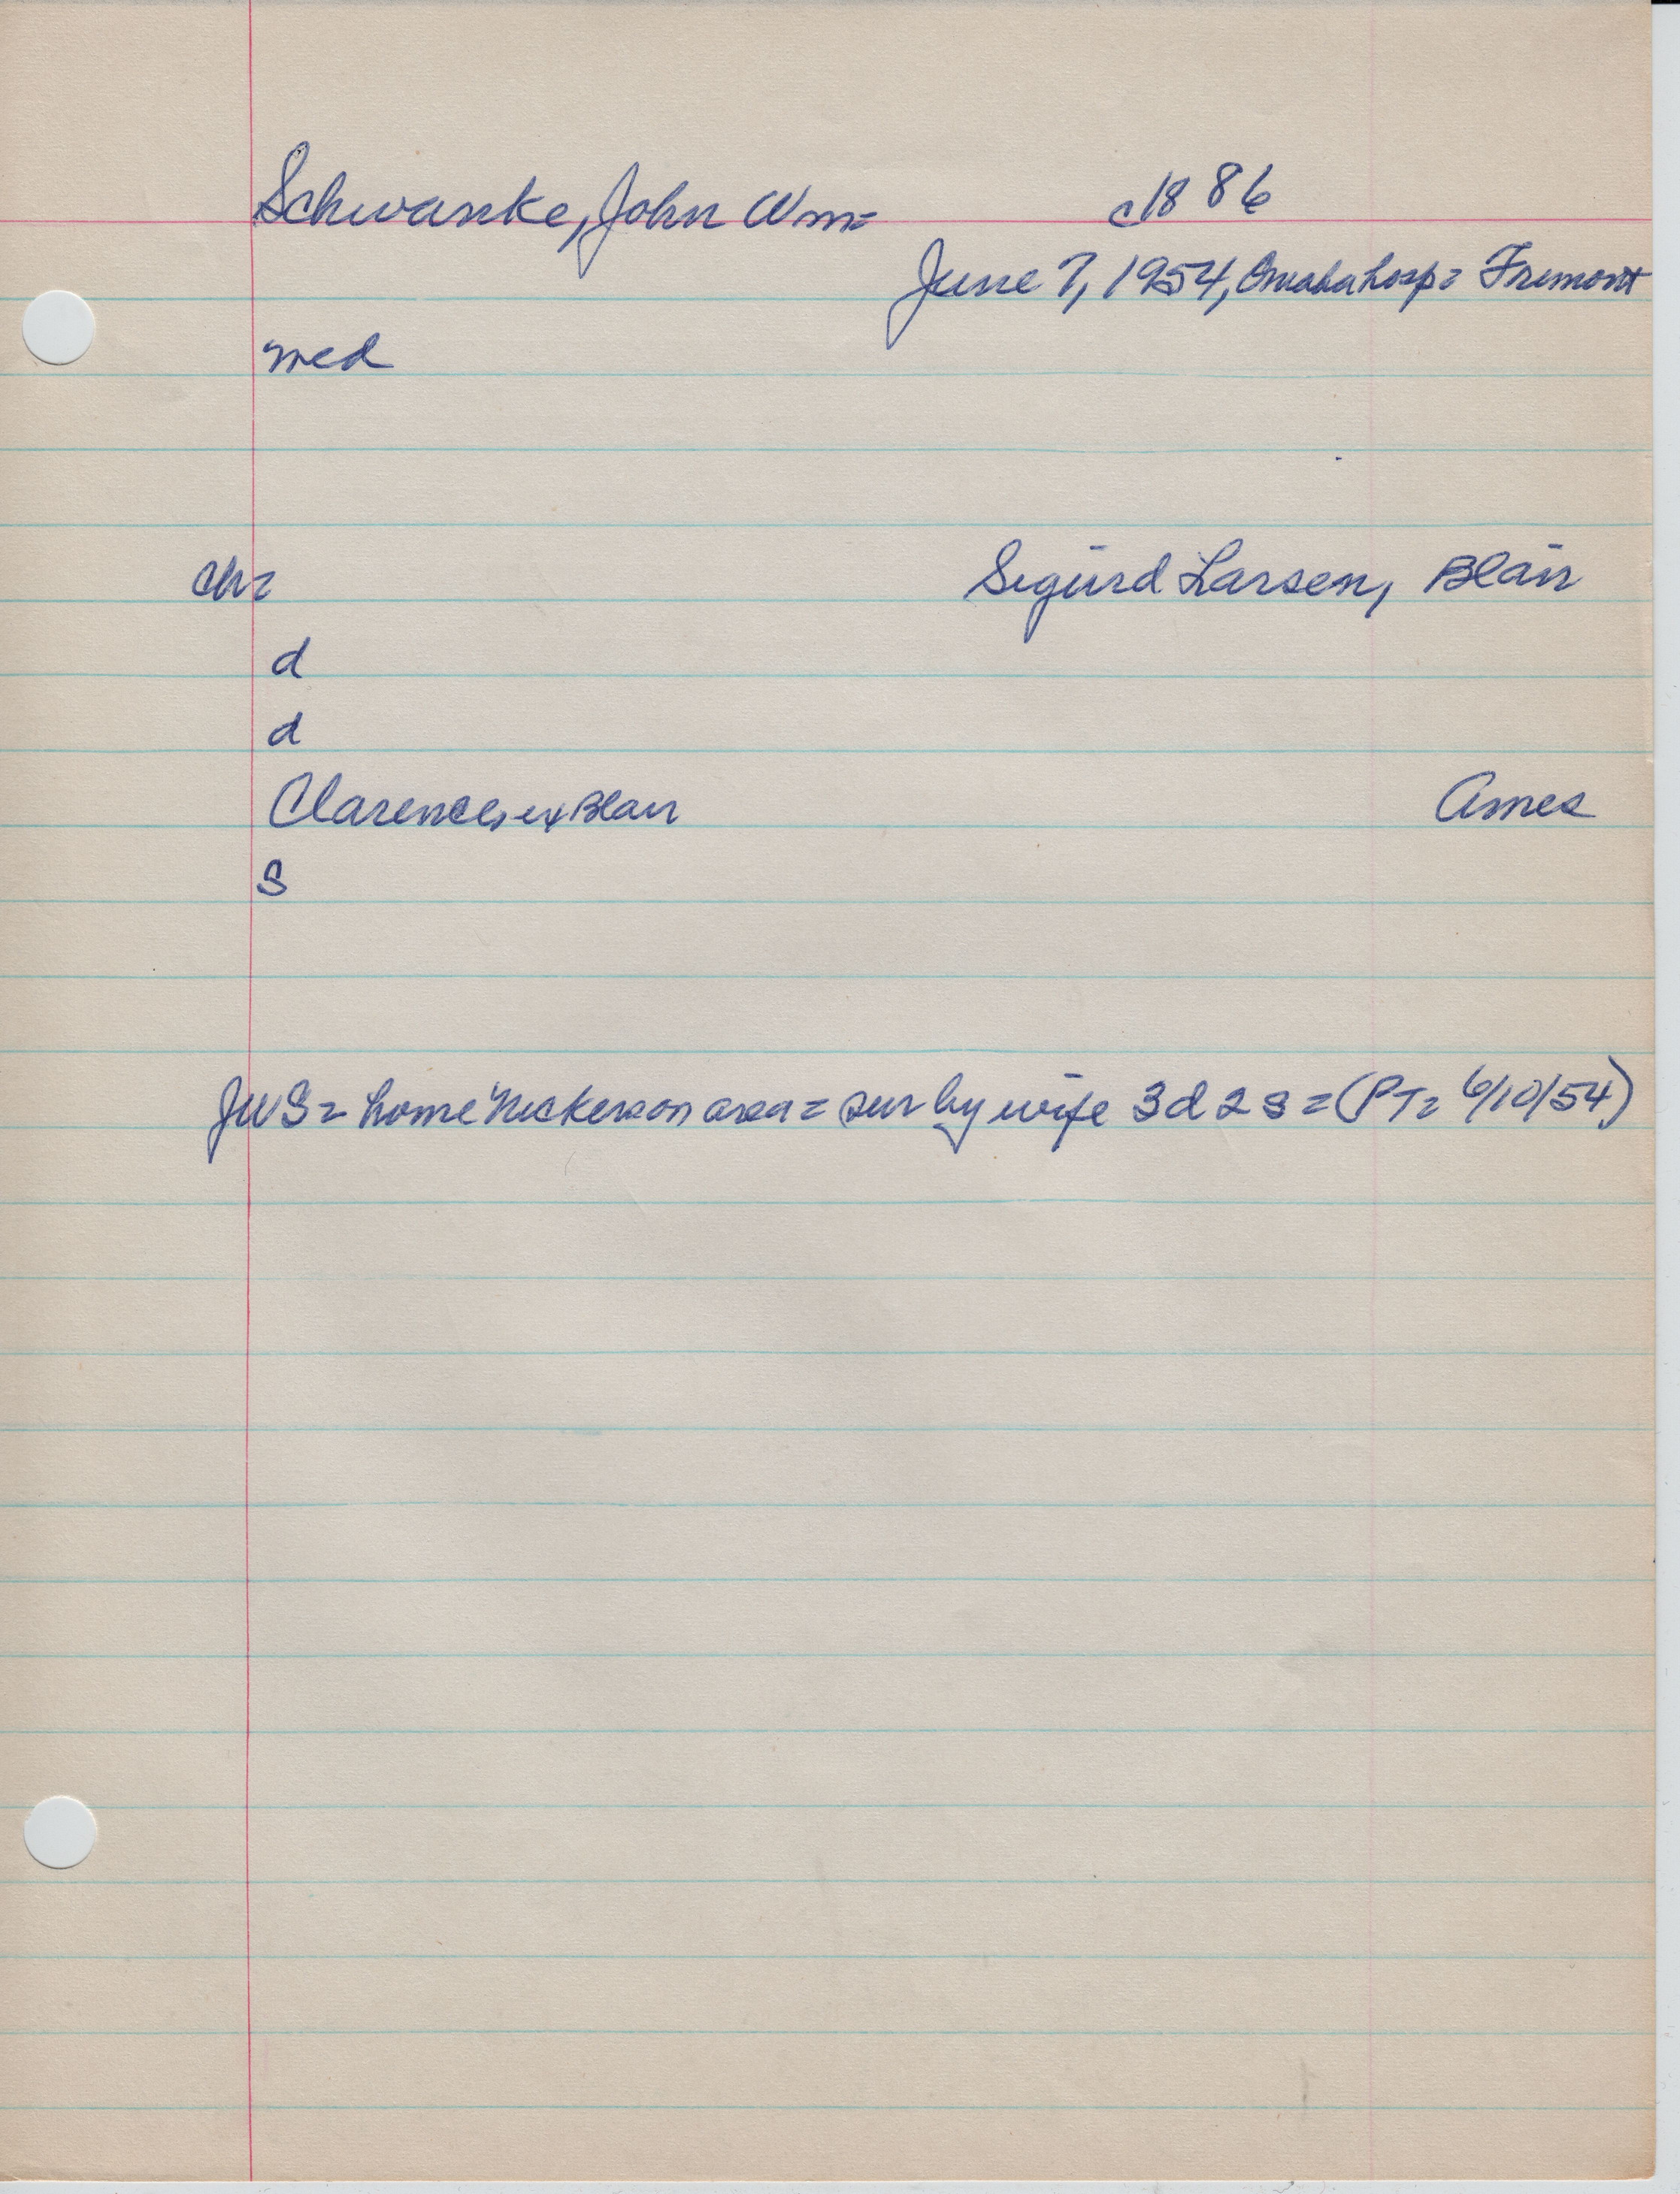 Schwanke, John Wm= c1886
June 7, 1954, Omaha hosp= Fremont
med
ch= Sigurd Larsen, Blair
d
d
Clarence, ex Blair Ames
s
JWS= home Nickerson area= sur by wife 3d 2s= (PT= 6/10/54)